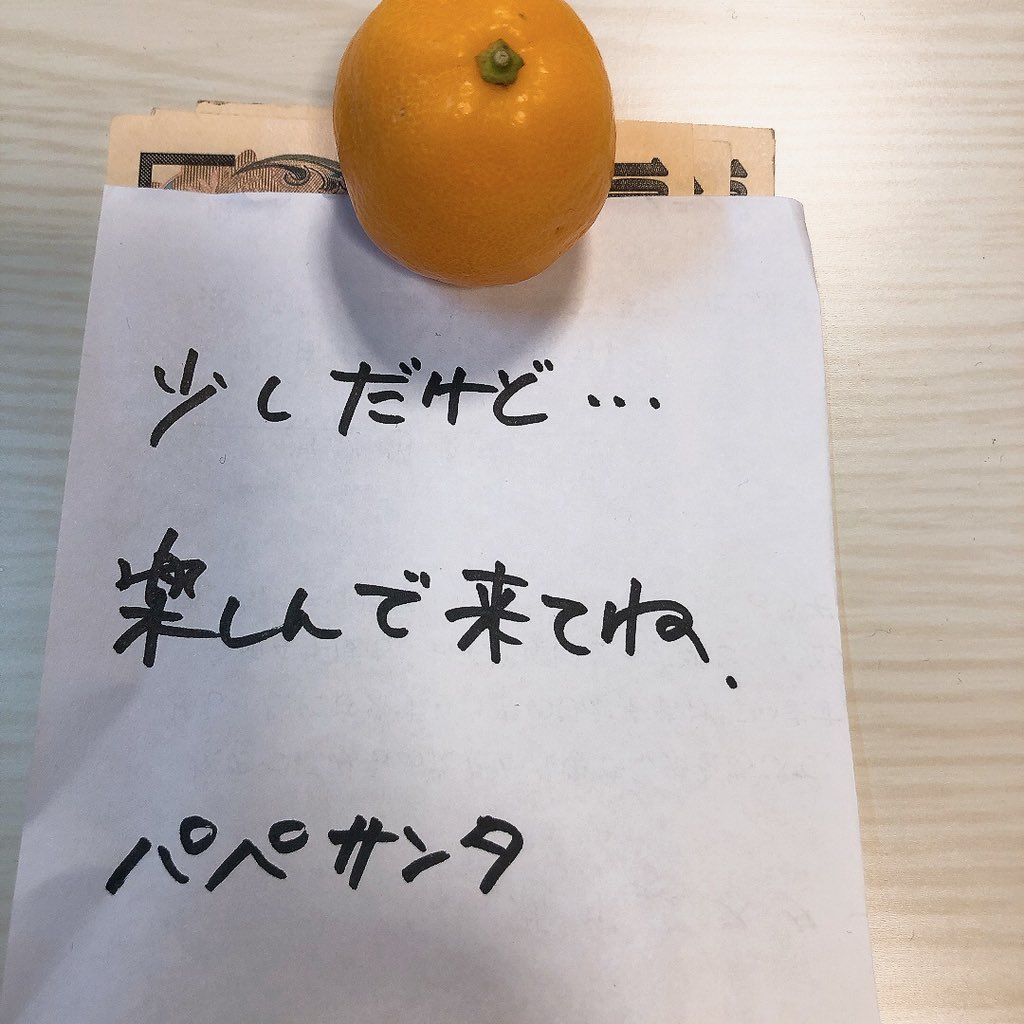 少しだけど...
楽しんで来てね.
パペサンタ